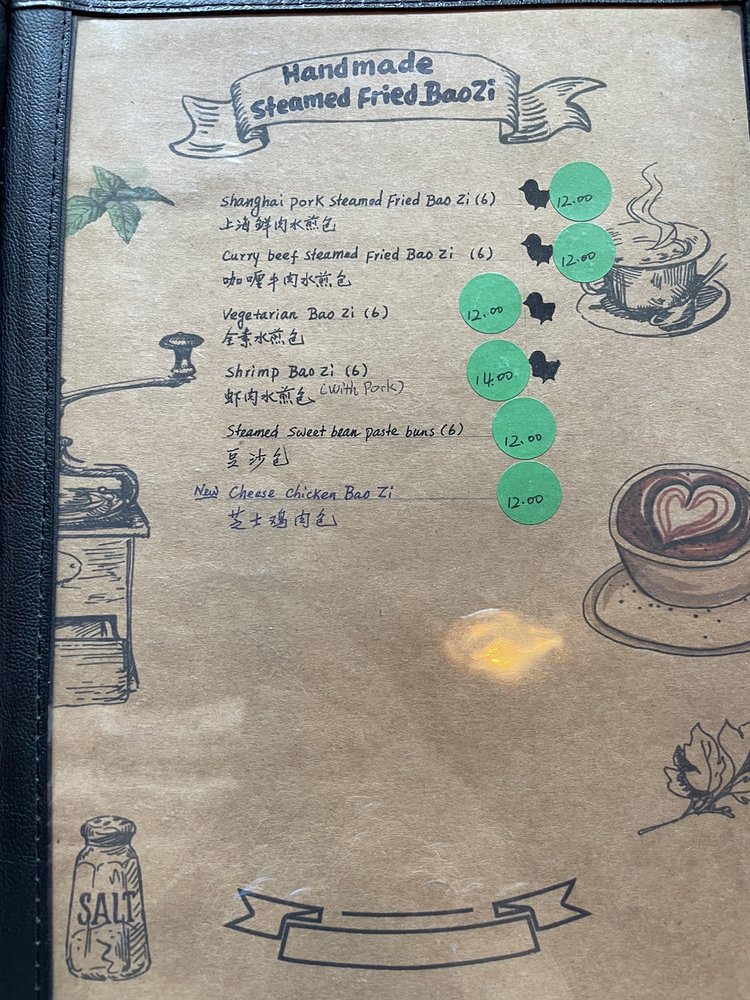 Handmade
Steamed Fried BaoZi
Shanghai pork steamed Fried Bao Zi (6) 12.00
上海鲜肉水煎包
Curry beef steamed Fried Bao Zi (6) 12.00
咖喱牛肉水煎包
Vegetarian Bao Zi (6) 12.00
全素水煎包
Shrimp Bao Zi (6) 14.00
虾肉水煎包 (with Pork)
Steamed sweet bean paste buns (6) 12.00
豆沙包
New Cheese chicken Bao Zi 12.00
芝士鸡肉包
SALT